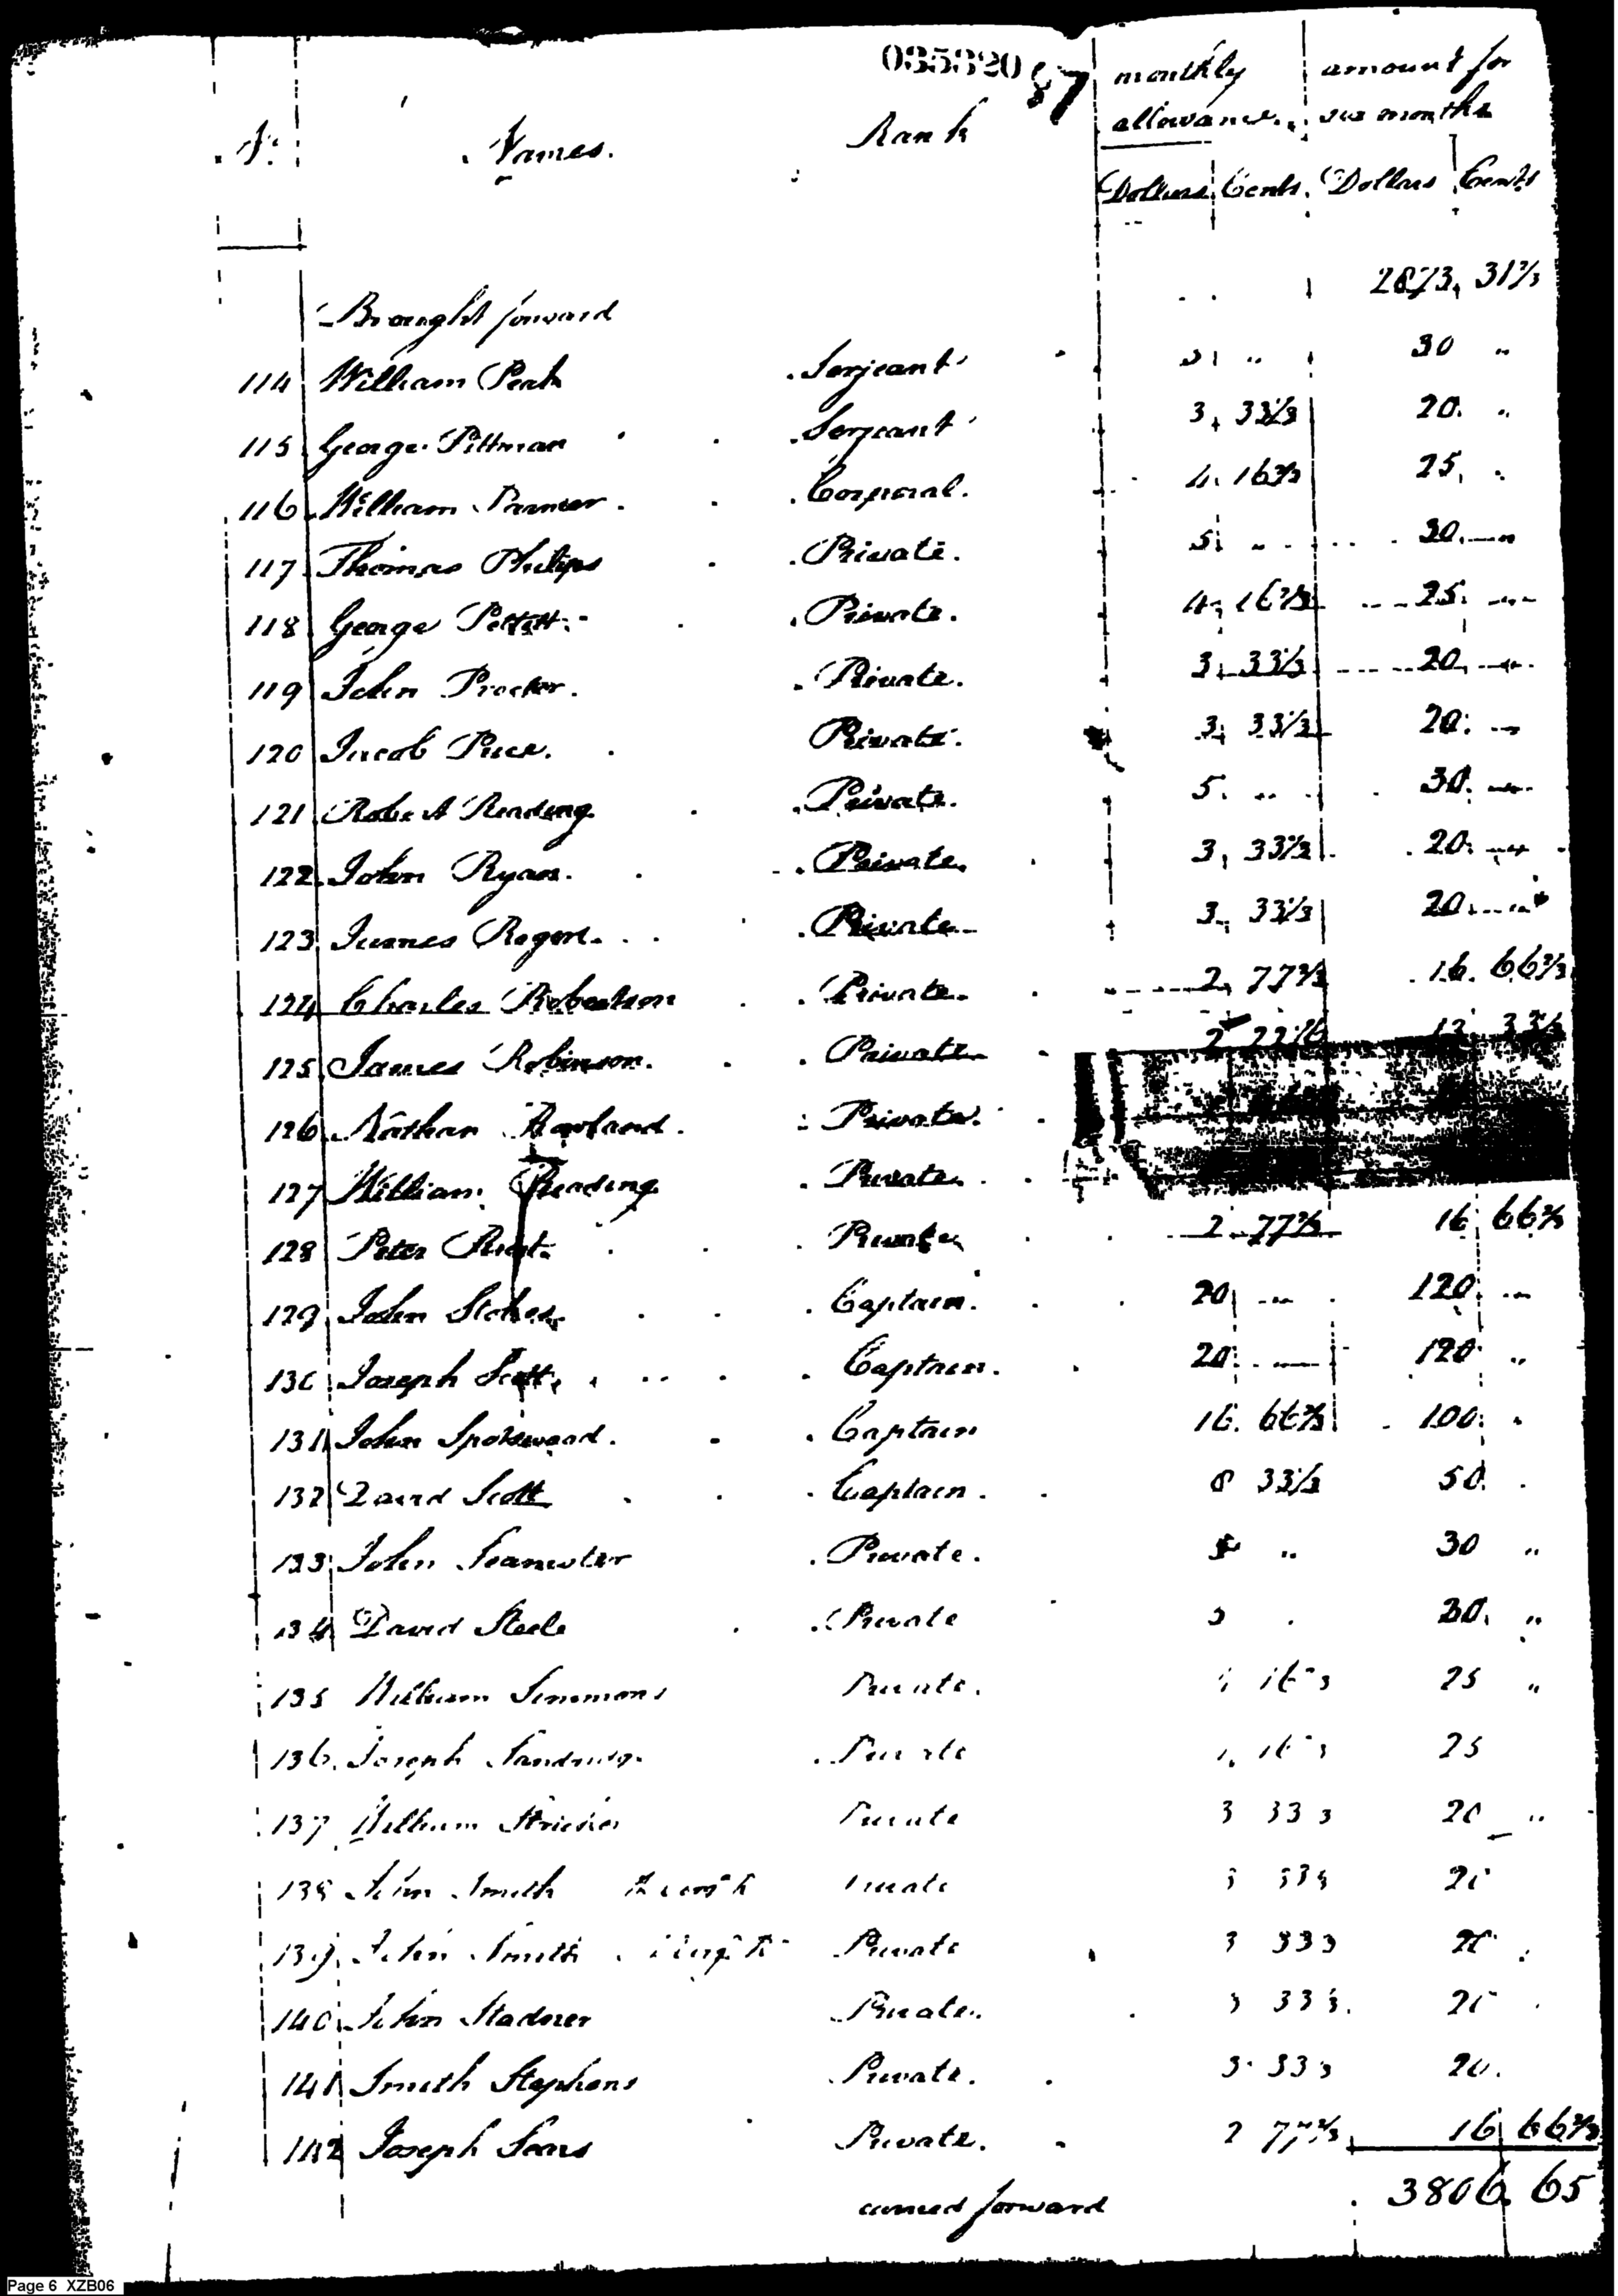 035320 87
No. Names. Rank monthly allowance. amount for six months
Dollars Cents. Dollars Cents
Brought forward 2873, 31⅔
114 William Serjeant 5 " 30 "
115 George Pittman Serjeant 3, 33⅓ 20. "
116 William Corporal. 4. 16⅔ 25, .
117 Thomas Philips Private. 5 " 30. — "
118 George Private. 4, 16⅔ 25. —
119 John Procter. Private. 3. 33⅓ 20, —
120 Jacob Price. Private. 3, 33⅓ 20. —
121 Robert Reading Private. 5. .. 30. —
122. John Ryan. Private. 3, 33⅓ 20. —
123. James Rogers. Private 3, 33⅓ 20 —
124 Charles Robertson Private. 2, 77⅔ 16. 66⅔
125 James Robinson. Private 2 22 13 33⅓
126 Nathan Rowland. Private.
127 William Reading Private.
128 Peter Private 2 77⅔ 16 66⅔
129 John Stokes Captain. 20 — 120. —
130 Joseph Scott, Captain. 20. — 120 "
131 John Spotswood. Captain 16. 66⅔ 100. "
132 David Scott Captain. 8 33⅓ 50. .
133 John Private. 5 " 30 "
134 David Steele Private 5 . 30. "
135 William Simmons Private. 4 16⅔ 25 "
136. Joseph Private 4. 16⅔ 25
137 William Private 3 33⅓ 20 "
138 John Smith Private 3 33⅓ 20
139. John Smith Private 3 33⅓ 20 .
140 John Private. 3 33⅓. 20 .
141 Smith Stephens Private. 3 33⅓ 20.
142 Joseph Sears Private. 2 77⅔ 16 66⅔
carried forward 3806. 65
Page 6 XZB06